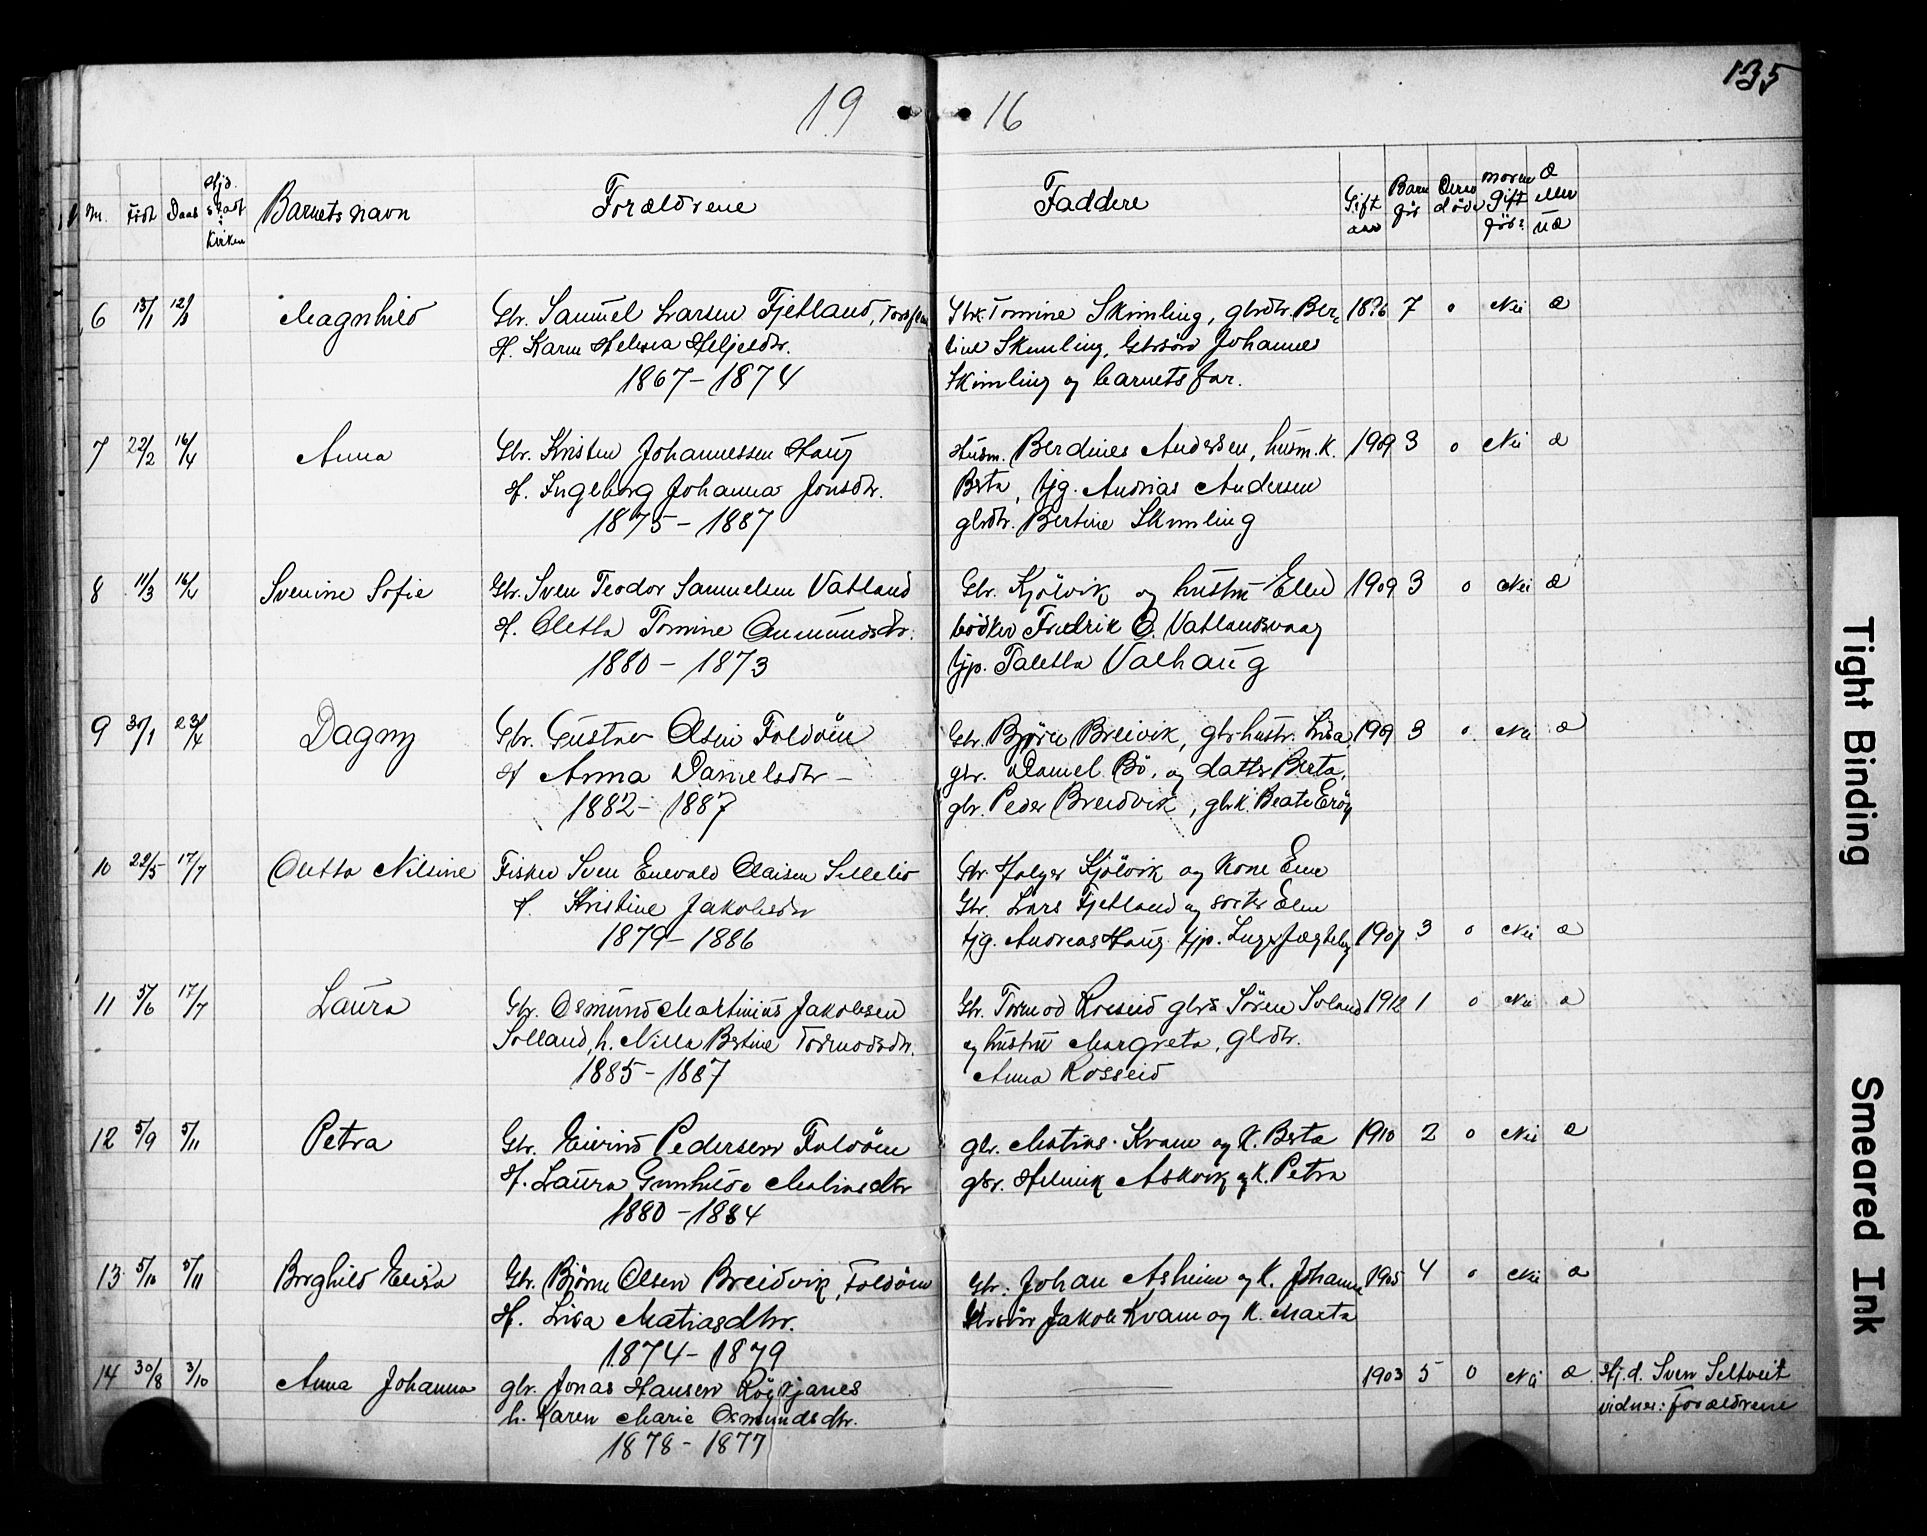 135
19 16
Nr. Født Daab Hjd. Stadf. i Kirken Barnets navn Forældrene Faddere Gift aar Barn før Deraf døde moren Gift før? Æ eller UÆ
6 13/1 12/3 Magnhild Gbr. Samuel Larsen Fjetland, Gbrk. Tomine Skimling, gbrdtr. Ber- 1896 7 0 Nei Æ
H. Karen Heljesdtr. tine Skimling, Gbrsøn Johannes
1867-1874 Skimling og barnets far.
7 22/2 16/4 Anna Gbr. Kristen Johannessen Haug Husm. Berdines Andersen, husm.k. 1909 3 0 Nei Æ
H. Ingeborg Johanna Jonsdtr. Berta, tjg. Andrias Andersen
1875-1887 gbrdtr. Bertine Skimling
8 11/3 16/4 Svenine Sofie Gbr. Sven Teodor Samuelsen Vatland Gbr. Kjölvik og hustru Elen 1909 3 0 Nei Æ
H. Oletta Tomine Aumundsdtr. bødker Fredrik O. Vatlandsvaag
1880-1873 tjp. Taletta Valhaug
9 30/1 23/4 Dagny Gbr. Gustav Olsen Foldöen Gbr. Björn Breivik, gbrhustr. Lisa, 1909 3 0 Nei Æ
H Anna Danielsdtr- gbr. Daniel Bö, og datter Berta,
1882-1887 gbr. Peder Breidvik, gbrk. Beate Eröy
10 22/5 17/7 Oletta Nilsine Fisker Sven Enevald Olaisen Gbr. Holger Kjölvik og Kone Elen
H. Kristine Jakobsdtr Gbr. Lars Fjetland og søster Elen
1879-1886 tjg. Andreas Haug tjp. Inger 1907 3 0 Nei Æ
11 5/6 17/7 Laura Gbr. Osmund Martinius Jakobsen Gbr. Tormod Rosseid gbrs. Sören Soland 1912 1 0 Nei Æ
Solland, h. Nilla Bertine Tormodsdtr. og hustru Margreta, gbrdtr.
1885-1887 Anna Rosseid
12 5/9 5/11 Petra Gbr. Eivind Pedersen Foldöen gbr. Matias Kvam og K. Berta 1910 2 0 Nei Æ
H. Laura Gunhilde Matiasdtr gbr. Helmik Askvik og K. Petra
1880-1884
13 5/10 5/11 Borghild Elisa Gbr. Björn Olsen Breidvik, Foldöen Gbr. Johan Asheim og K. Johanne 1905 4 0 Nei Æ
H. Lisa Matiasdtr. Gbrsön Jakob Kvam og K. Marta
1874-1879
14 30/8 3/10 Anna Johanna gbr. Jonas Hansen Röykjanes 1903 5 0 Nei Æ Hj.d. Sven Seltveit
h. Karen Marie Osmundsdtr. vidner: Forældrene
1878-1877
Tight Binding
Smeared Ink